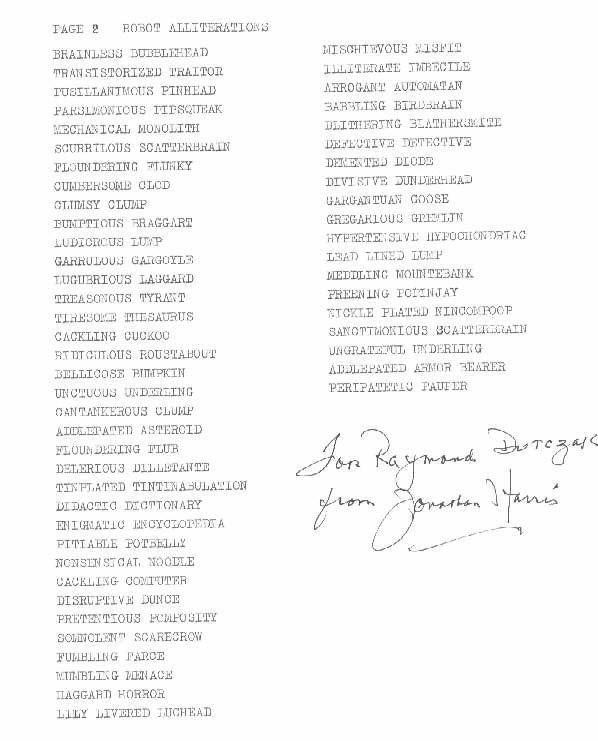 PAGE 2 ROBOT ALLITERATIONS
BRAINLESS BUBBLEHEAD
TRANSISTORIZED TRAITOR
PUSILLANIMOUS PINHEAD
PARSIMONIOUS PIPSQUEAK
MECHANICAL MONOLITH
SCURRILOUS SCATTERBRAIN
FLOUNDERING FLUNKY
CUMBERSOME CLOD
CLUMSY CLUMP
BUMPTIOUS BRAGGART
LUDICROUS LUMP
GARRULOUS GARGOYLE
LUGUBRIOUS LAGGARD
TREASONOUS TYRANT
TIRESOME THESAURUS
CACKLING CUCKOO
RIDICULOUS ROUSTABOUT
BELLICOSE BUMPKIN
UNCTUOUS UNDERLING
CANTANKEROUS CLUMP
ADDLEPATED ASTEROID
FLOUNDERING FLUB
DELERIOUS DILLETANTE
TINPLATED TINTINABULATION
DIDACTIC DICTIONARY
ENIGMATIC ENCYCLOPEDIA
PITIABLE POTBELLY
NONSENSICAL NOODLE
CACKLING COMPUTER
DISRUPTIVE DUNCE
PRETENTIOUS POMPOSITY
SOMNOLENT SCARECROW
FUMBLING FARCE
MUMBLING MENACE
HAGGARD HORROR
LILY LIVERED LUGHEAD
MISCHIEVOUS MISFIT
ILLITERATE IMBECILE
ARROGANT AUTOMATAN
BABBLING BIRDBRAIN
BLITHERING BLATHERSMITE
DEFECTIVE DETECTIVE
DEMENTED DIODE
DIVISIVE DUNDERHEAD
GARGANTUAN GOOSE
GREGARIOUS GREMLIN
HYPERTENSIVE HYPOCHONDRIAC
LEAD LINED LUMP
MEDDLING MOUNTEBANK
PREENING POPINJAY
NICKLE PLATED NINCOMPOOP
SANCTIMONIOUS SCATTERBRAIN
UNGRATEFUL UNDERLING
ADDLEPATED ARMOR BEARER
PERIPATETIC PAUPER
For Raymond
from Jonathan Harris